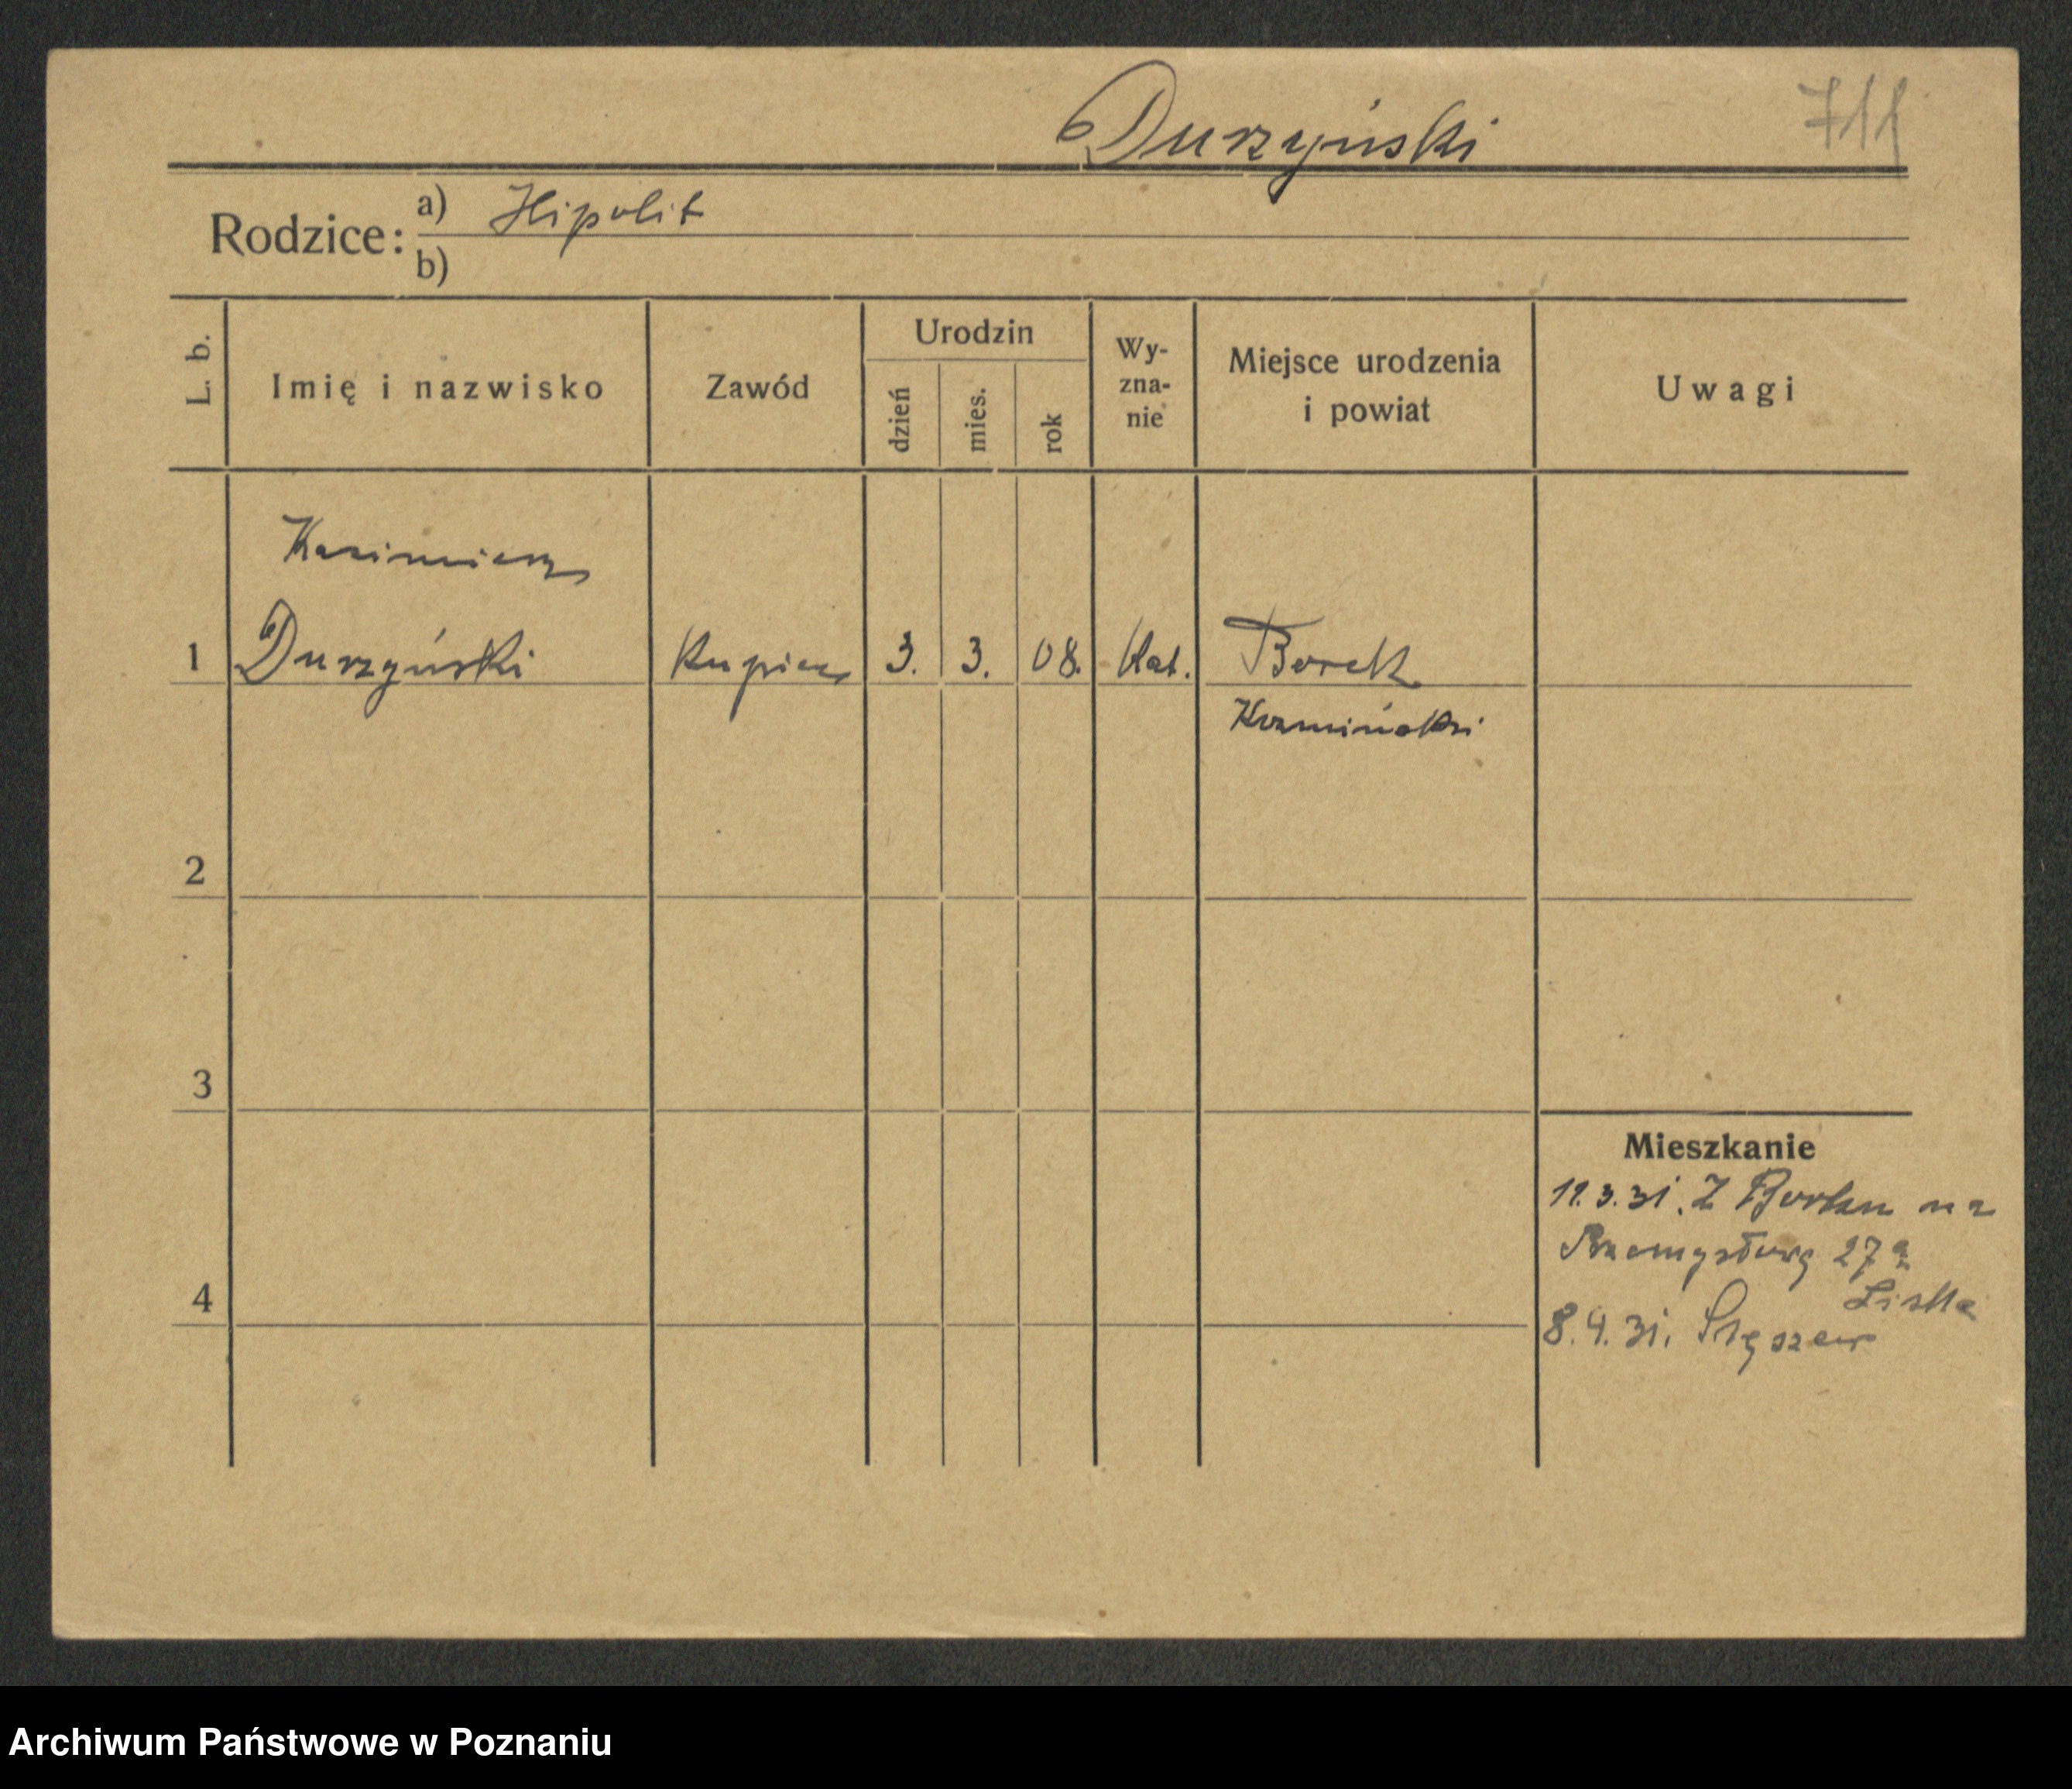 Durzyński
711
Rodzice:
a) Hipolit
b)
L. b.
Imię i nazwisko
Zawód
Urodzin
dzień
mies.
rok
Wy-
zna-
nie
Miejsce urodzenia
i powiat
Uwagi
Kazimierz
1 Durzyński Kupiec 3. 3. 08. Kat. Borek
Kozmiński
2
3
4
Mieszkanie
11.3.31. Z Borku na
Przemysłową 27a
Liska
8.4.31. Stęszew
Archiwum Państwowe w Poznaniu